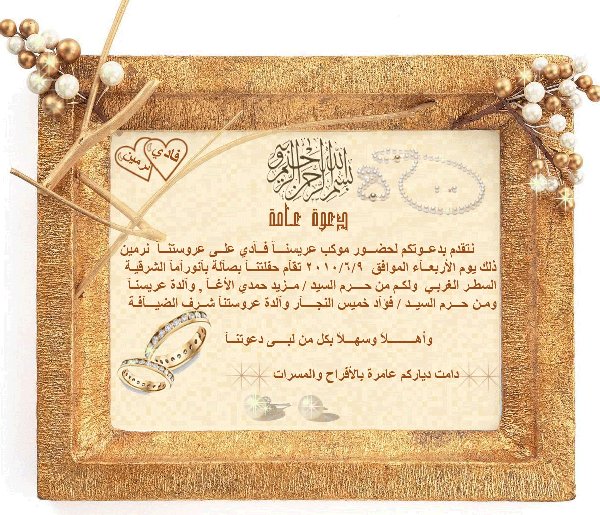 فادي
نرمين
بسم الله الرحمن الرحيم
دعوة عامة
نتقدم بدعوتكم لحضور موكب عريسنا فادي على عروستنا نرمين
ذلك يوم الأربعاء الموافق ٢٠١٠/٦/٩ تقام حفلتنا بصالة بانوراما الشرقية
السطر الغربي ولكم من حرم السيد / مزيد حمدي الأغا , والدة عريسنا
ومن حرم السيد / فؤاد خميس النجار والدة عروستنا شرف الضيافة
وأهلا وسهلا بكل من لبى دعوتنا
دامت دياركم عامرة بالأفراح والمسرات